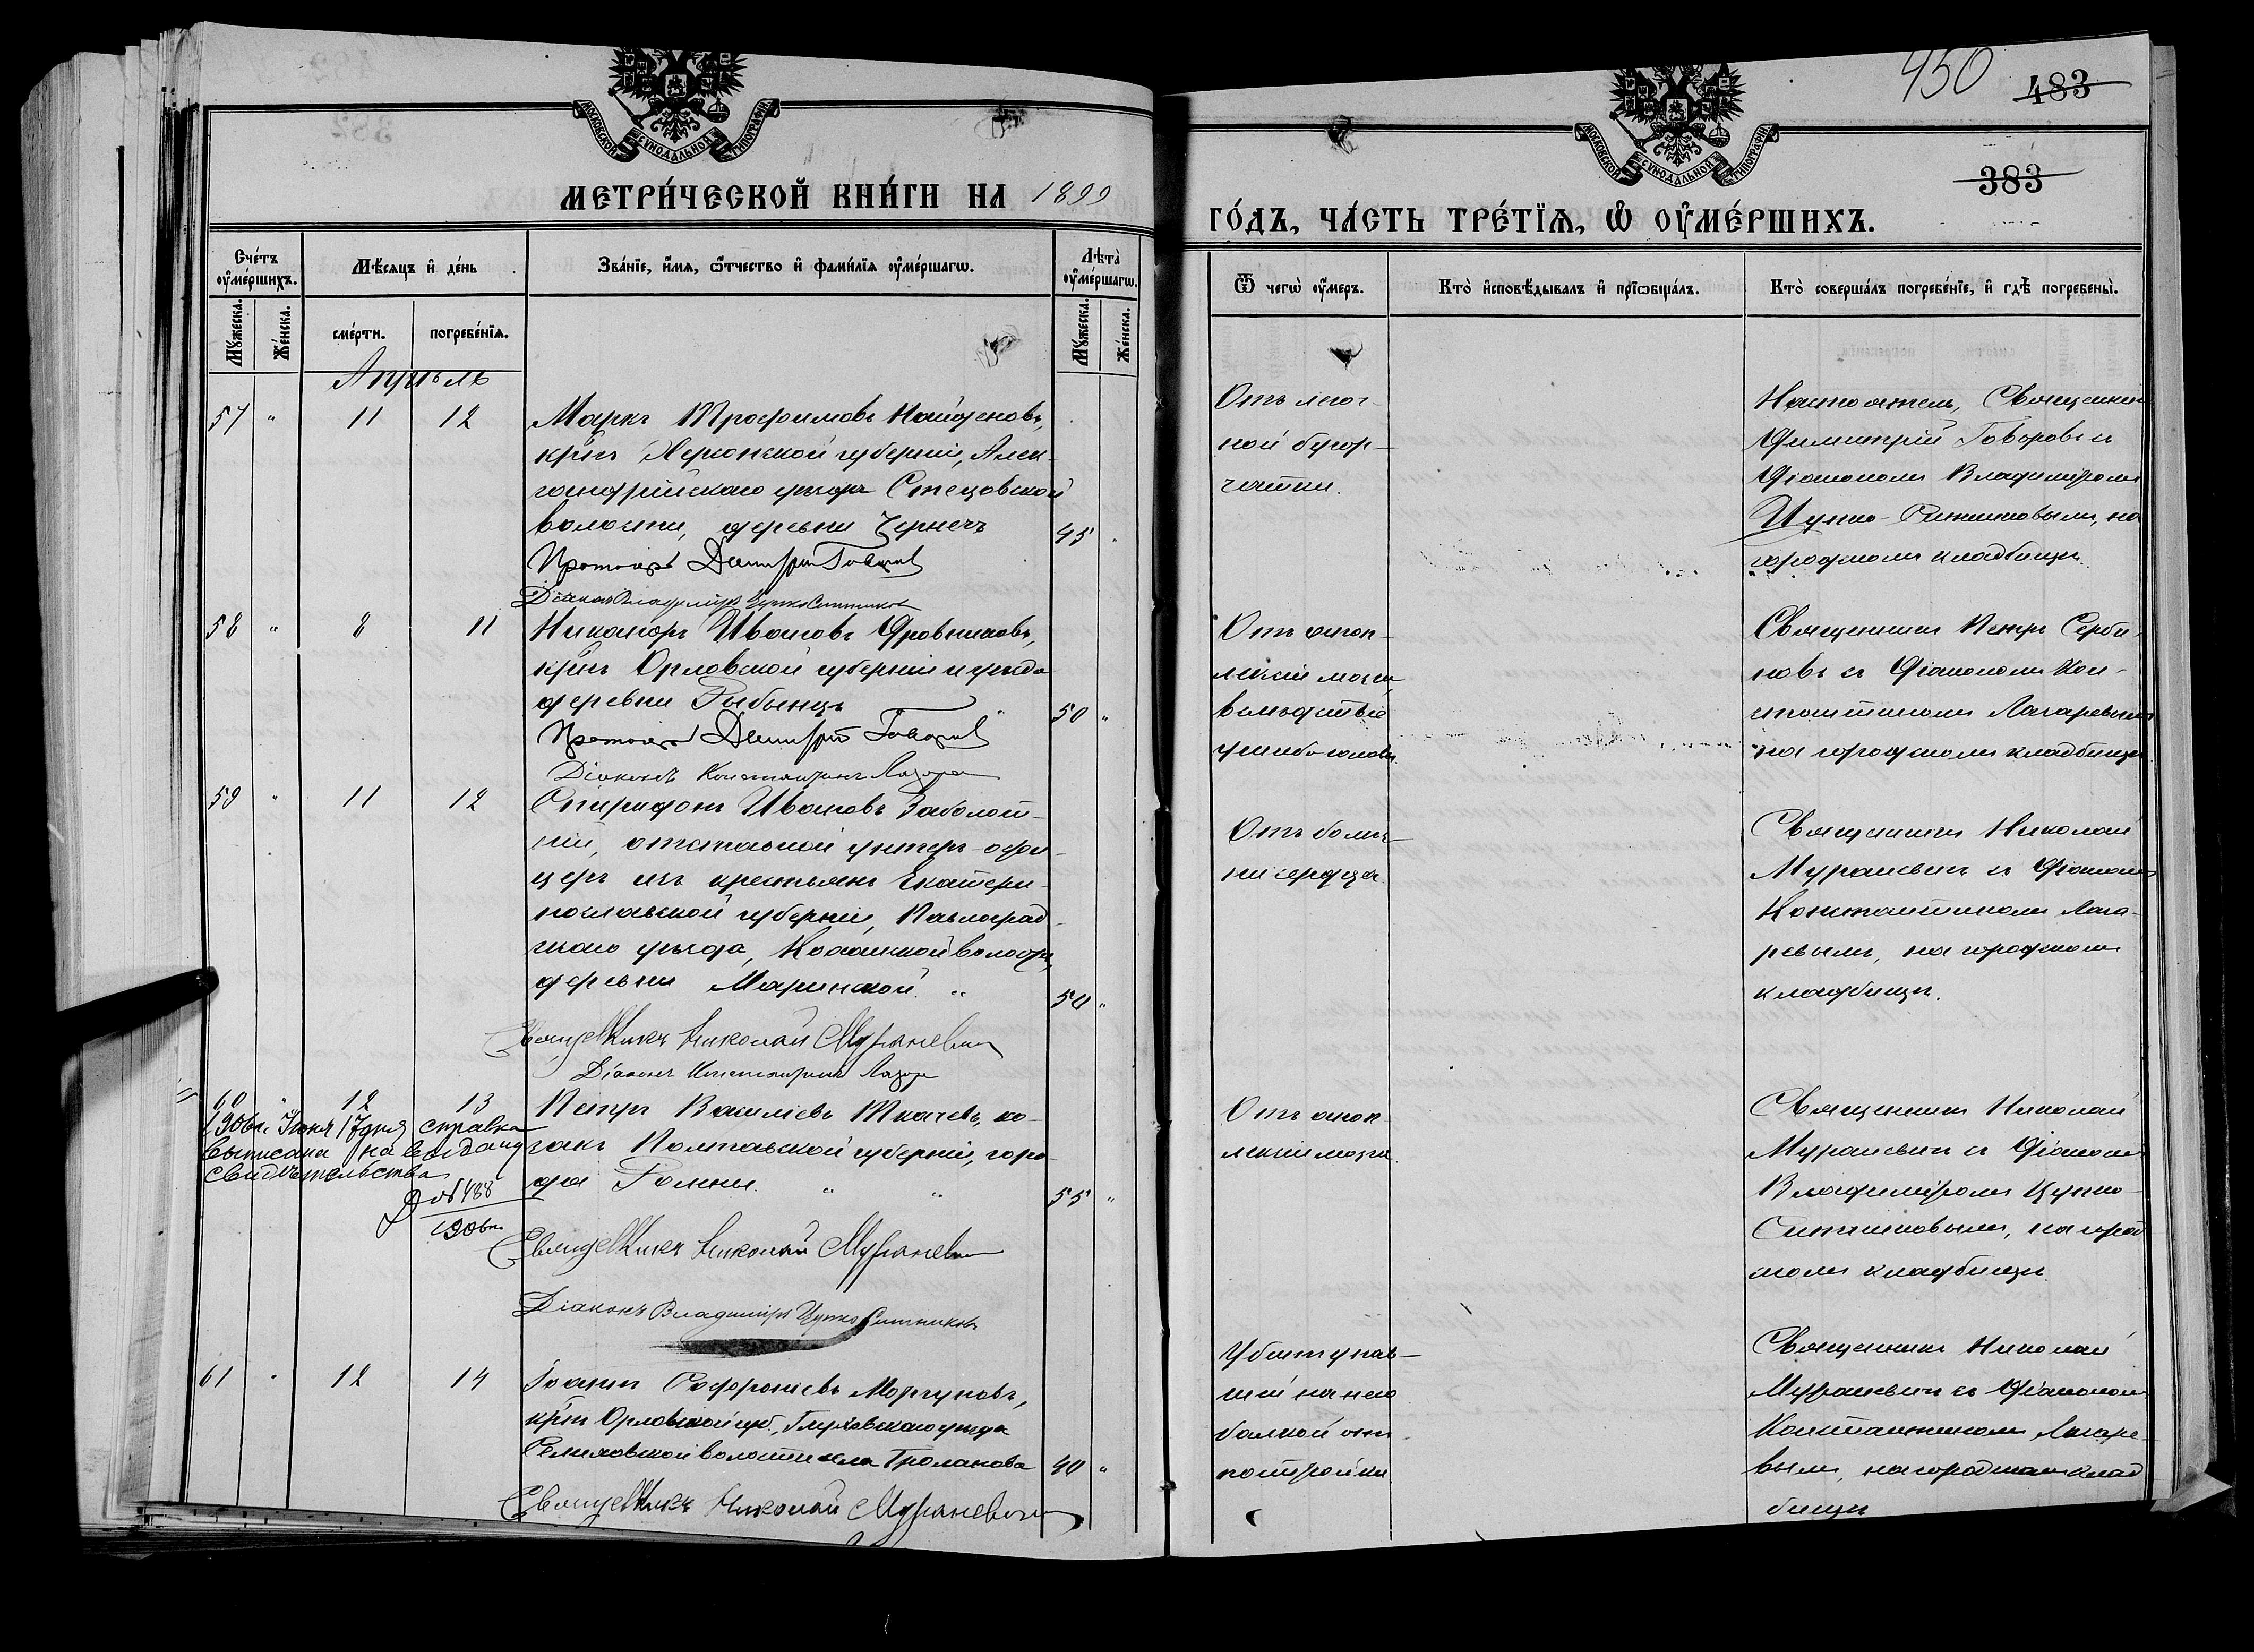 450
483
383
МОСКОВСКОЙ СѴНОДАЛЬНОЙ ТИПОГРАФІИ
МОСКОВСКОЙ СѴНОДАЛЬНОЙ ТИПОГРАФІИ
МЕТРИ́ЧЕСКОЙ КНИ́ГИ НА 1899
ГО́ДЪ, ЧА́СТЬ ТРЕ́ТЇѦ, Ѡ҆ ОУ҆МЕ́РШИХЪ.
Сче́тъ оу҆ме́ршихъ.
Мѣ́сѧцъ и҆ де́нь
Зва́нїе, и҆́мѧ, ѻ҆́тчество и҆ фами́лїѧ оу҆ме́ршагѡ.
Лѣ̑та̀ оу҆ме́ршагѡ.
Ѿ чегѡ̀ оу҆́меръ.
Кто̀ и҆сповѣ́дывалъ и҆ прїѡбща́лъ.
Кто̀ соверша́лъ погребе́нїе, и҆ гдѣ̀ погребены̀.
Мꙋ́жеска.
Же́нска.
сме́рти.
погребе́нїѧ.
Мꙋ́жеска.
Же́нска.
Апрѣль
57 " 11 12
Маркъ Трофимовъ Найденовъ,
кр̃нъ Херсонской губерніи, Алек-
сандрійскаго уѣзда Стецовской
волости, деревни Чернечъ
45 "
Протоіерей Димитрій Говоровъ
Діаконъ Владиміръ Цупко Ситниковъ
Отъ легоч-
ной бугор-
чатки.
Настоятель, Священникъ
Димитрій Говоровъ съ
Діакономъ Владиміромъ
Цупко-Ситниковымъ, на
городскомъ кладбищѣ.
58 " 8 11
Никаноръ Ивановъ Дровниковъ,
кр̃нъ Орловской губерніи и уѣзда
деревни Рыбинцъ
50 "
Протоіерей Димитрій Говоровъ
Діаконъ Константинъ Лазоре
Отъ апоп-
лексіи мозга,
вслѣдствіе
ушиба головы.
Священникъ Петръ Серби-
новъ съ Діакономъ Кон-
стантиномъ Лазаревымъ
на городскомъ кладбищѣ.
59 " 11 12
Спиридонъ Ивановъ Заболот-
ній, отставной унтеръ-офи-
церъ изъ крестьянъ Екатери-
нославской губерніи, Павлоград-
скаго уѣзда,
деревни Маринской. "
50 "
Священникъ Николай Мураневичъ
Діаконъ Константинъ Лазоре
Отъ болѣз-
ни сердца.
Священникъ Николай
Мураневичъ съ Діакономъ
Константиномъ Лаза-
ревымъ, на городскомъ
кладбищѣ.
60 " 12 13
1906г. Іюня 17 дня справка
выписана на выдачу
свидѣтельства
488
1906г.
Петръ Василіевъ Ткачевъ, ко-
закъ Полтавской губерніи, горо-
да Ромны. " "
55 "
Священникъ Николай Мураневичъ
Діаконъ Владиміръ Цупко Ситниковъ
Отъ апоп-
лексіи мозга.
Священникъ Николай
Мураневичъ съ Діакономъ
Владиміромъ Цупко-
Ситниковымъ, на город-
скомъ кладбищѣ.
61 " 12 14
Іоаннъ Софроніевъ Моргуновъ,
кр̃нъ Орловской губ., Глуховскаго уѣзда
волости села
40 "
Священникъ Николай Мураневичъ
Убитъ упав-
шей на него
балкой отъ
постройки
Священникъ Николай
Мураневичъ съ Діакономъ
Константиномъ Лазаре-
вымъ, на городскомъ клад-
бищѣ